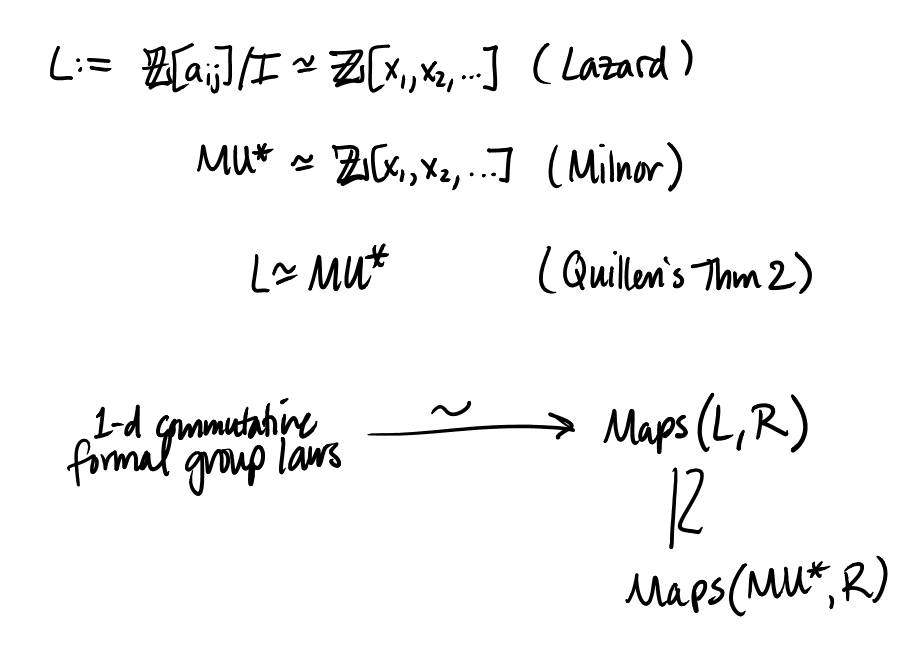 L := ℤ[a_ij]/I ≃ ℤ[x₁, x₂, ...] (Lazard)
MU* ≃ ℤ[x₁, x₂, ...] (Milnor)
L ≃ MU* (Quillen's Thm 2)
1-d commutative
formal group laws
∼
⟶
Maps(L, R)
≀|
Maps(MU*, R)